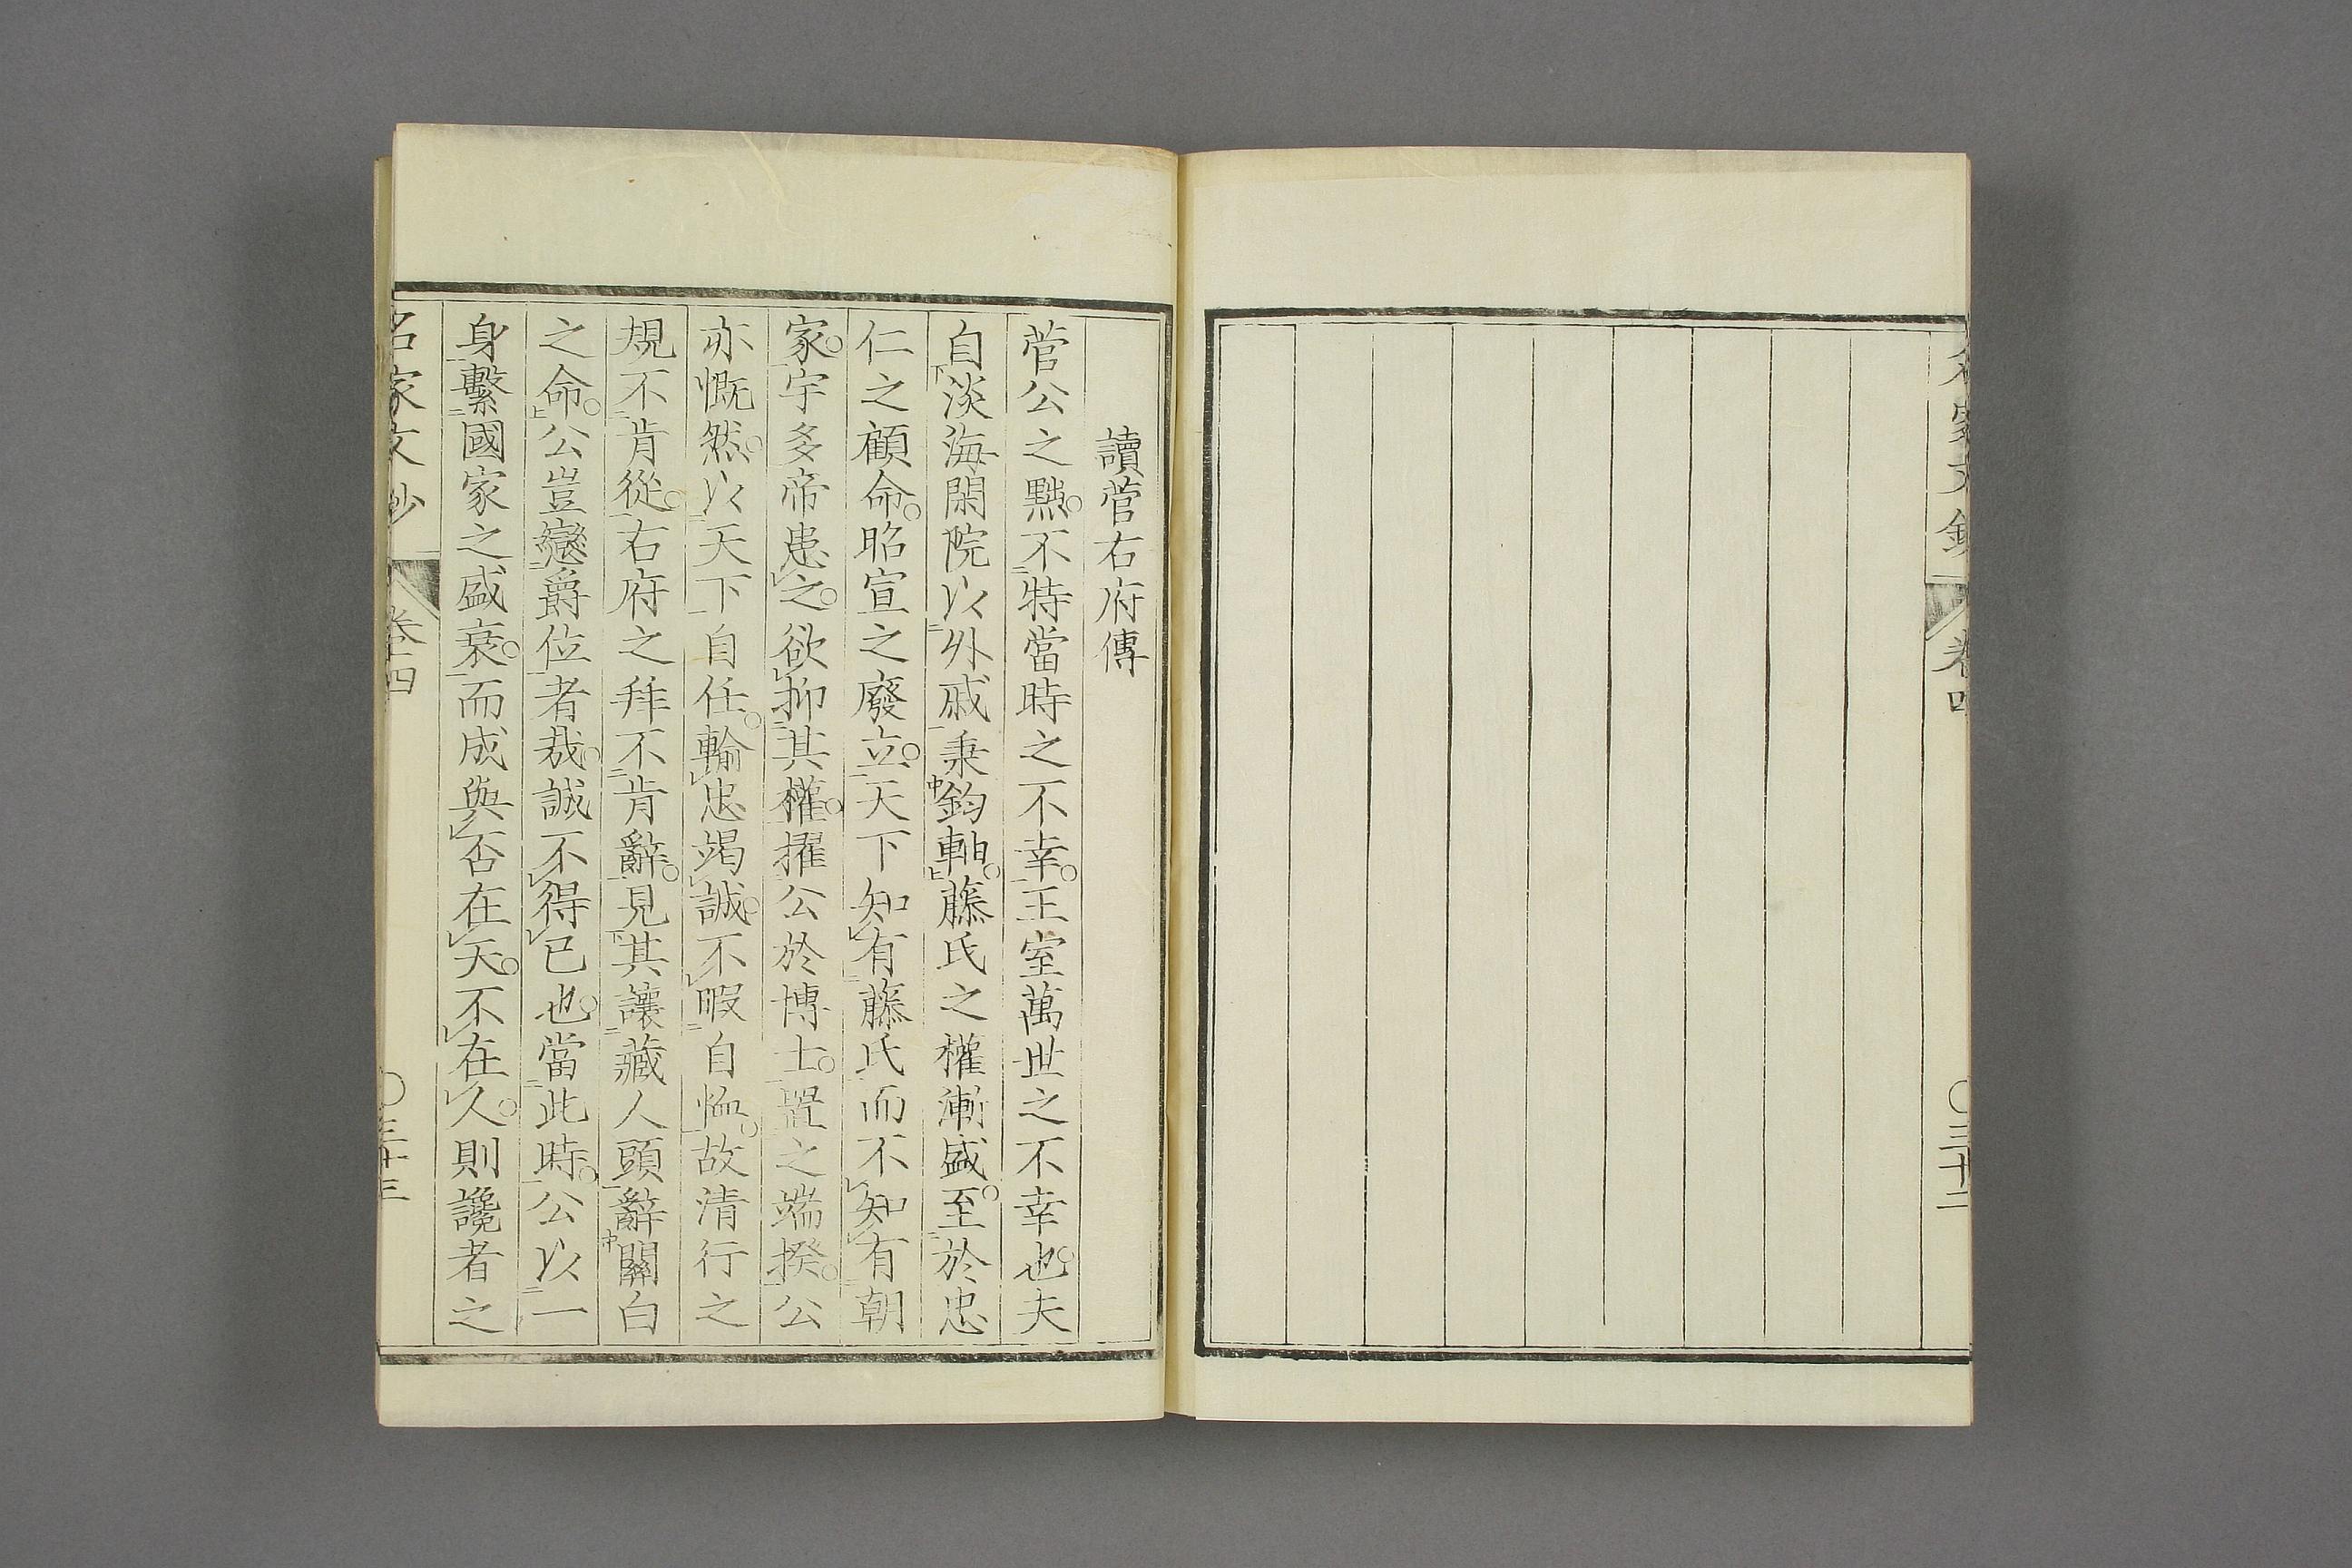 名家文鈔 卷四 〇三十二
讀菅右府傳
菅公之黜。不特當時之不幸。王室萬世之不幸也。夫
自淡海閑院以外戚秉鈞軸。藤氏之權漸盛。至於忠
仁之顧命。昭宣之廢立。天下知有藤氏而不知有朝
家。宇多帝患之。欲抑其權。擢公於博士。置之端揆。公
亦慨然以天下自任。輸忠竭誠。不暇自恤。故清行之
規不肯從。右府之拜不肯辭。見其讓藏人頭辭關白
之命。公豈戀爵位者哉。誠不得已也。當此時。公以一
身繫國家之盛衰。而成與否在天。不在人。則讒者之
名家文鈔 卷四 〇三十三